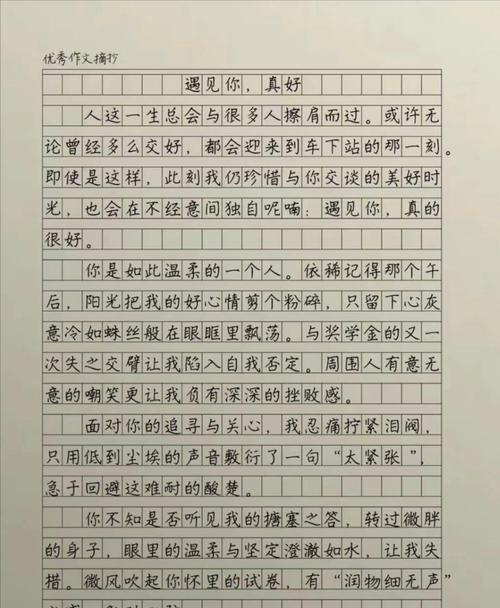 优秀作文摘抄
遇见你，真好
人这一生总会与很多人擦肩而过。或许无
论曾经多么交好，都会迎来到车下站的那一刻。
即使是这样，此刻我仍珍惜与你交谈的美好时
光，也会在不经意间独自呢喃：遇见你，真的
很好。
你是如此温柔的一个人。依稀记得那个午
后，阳光把我的好心情剪个粉碎，只留下心灰
意冷如蛛丝般在眼眶里飘荡。与奖学金的又一
次失之交臂让我陷入自我否定。周围人有意无
意的嘲笑更让我负有深深的挫败感。
面对你的追寻与关心，我忍痛拧紧泪阀，
只用低到尘埃的声音敷衍了一句“太紧张”，
急于回避这难耐的酸楚。
你不知是否听见我的搪塞之答，转过微胖
的身子，眼里的温柔与坚定澄澈如水，让我失
措。微风吹起你怀里的试卷，有“润物细无声”